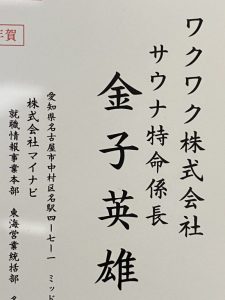 ワクワク株式会社
サウナ特命係長
金子英雄
愛知県名古屋市中村区名駅四-七-一 ミッド
株式会社マイナビ
就職情報事業本部 東海営業統括部 名
年賀